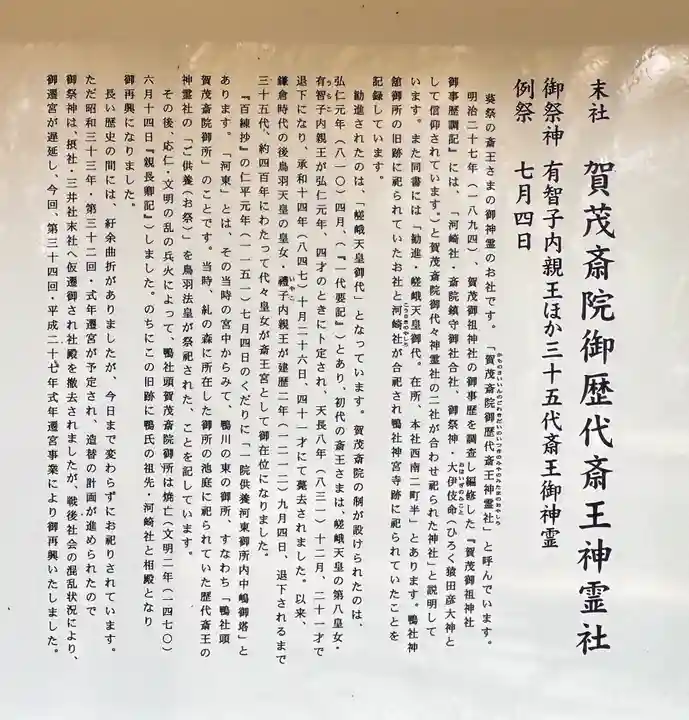 末社　賀茂斎院御歴代斎王神霊社
御祭神　有智子内親王ほか三十五代斎王御神霊
例祭　七月四日
葵祭の斎王さまの御神霊のお社です。「賀茂斎院御歴代斎王神霊社」と呼んでいます。
明治二十七年(一八九四)、賀茂御祖神社の御事歴を調査し編修した『賀茂御祖神社
御事歴調記』には、「河崎社・斎院鎮守御社合社、御祭神・大伊伎命(ひろく猿田彦大神と
して信仰されています。)と賀茂斎院御代々神霊社の二社が合わせ祀られた神社」と説明して
います。また同書には「勧進・嵯峨天皇御代。在所、本社西南二町半」とあります。鴨社神
舘御所の旧跡に祀られていたお社と河崎社が合祀され鴨社神宮寺跡に祀られていたことを
記録しています。
勧進されたのは、「嵯峨天皇御代」となっています。賀茂斎院の制が設けられたのは、
弘仁元年(八一〇)四月、(『一代要記』)とあり、初代の斎王さまは、嵯峨天皇の第八皇女・
有智子内親王が弘仁元年、四才のときに卜定され、天長八年(八三一)十二月、二十一才で
退下になり、承和十四年(八四七)十月二十六日、四十一才にて薨去されました。以来、
鎌倉時代の後鳥羽天皇の皇女・禮子内親王が建暦二年(一二一二)九月四日、退下されるまで
三十五代、約四百年にわたって代々皇女が斎王宮として御在位になりました。
『百練抄』の仁平元年(一一五一)七月四日のくだりに「一院供養河東御所内中嶋御塔」と
あります。「河東」とは、その当時の宮中からみて、鴨川の東の御所、すなわち「鴨社頭
賀茂斎院御所」のことです。当時、糺の森に所在した御所の池庭に祀られていた歴代斎王の
神霊社の「ご供養(お祭)」を鳥羽法皇が祭祀された、ことを記しています。
その後、応仁・文明の乱の兵火によって、鴨社頭賀茂斎院御所は焼亡(文明二年(一四七〇)
六月十四日『親長卿記』)しました。のちにこの旧跡に鴨氏の祖先・河崎社と相殿となり
御再興になりました。
長い歴史の間には、紆余曲折がありましたが、今日まで変わらずにお祀りされています。
ただ昭和三十三年・第三十二回・式年遷宮が予定され、造替の計画が進められたので
御祭神は、摂社・三井社末社へ仮遷御され社殿を撤去されましたが、戦後社会の混乱状況により、
御遷宮が遅延し、今回、第三十四回・平成二十七年式年遷宮事業により御再興いたしました。